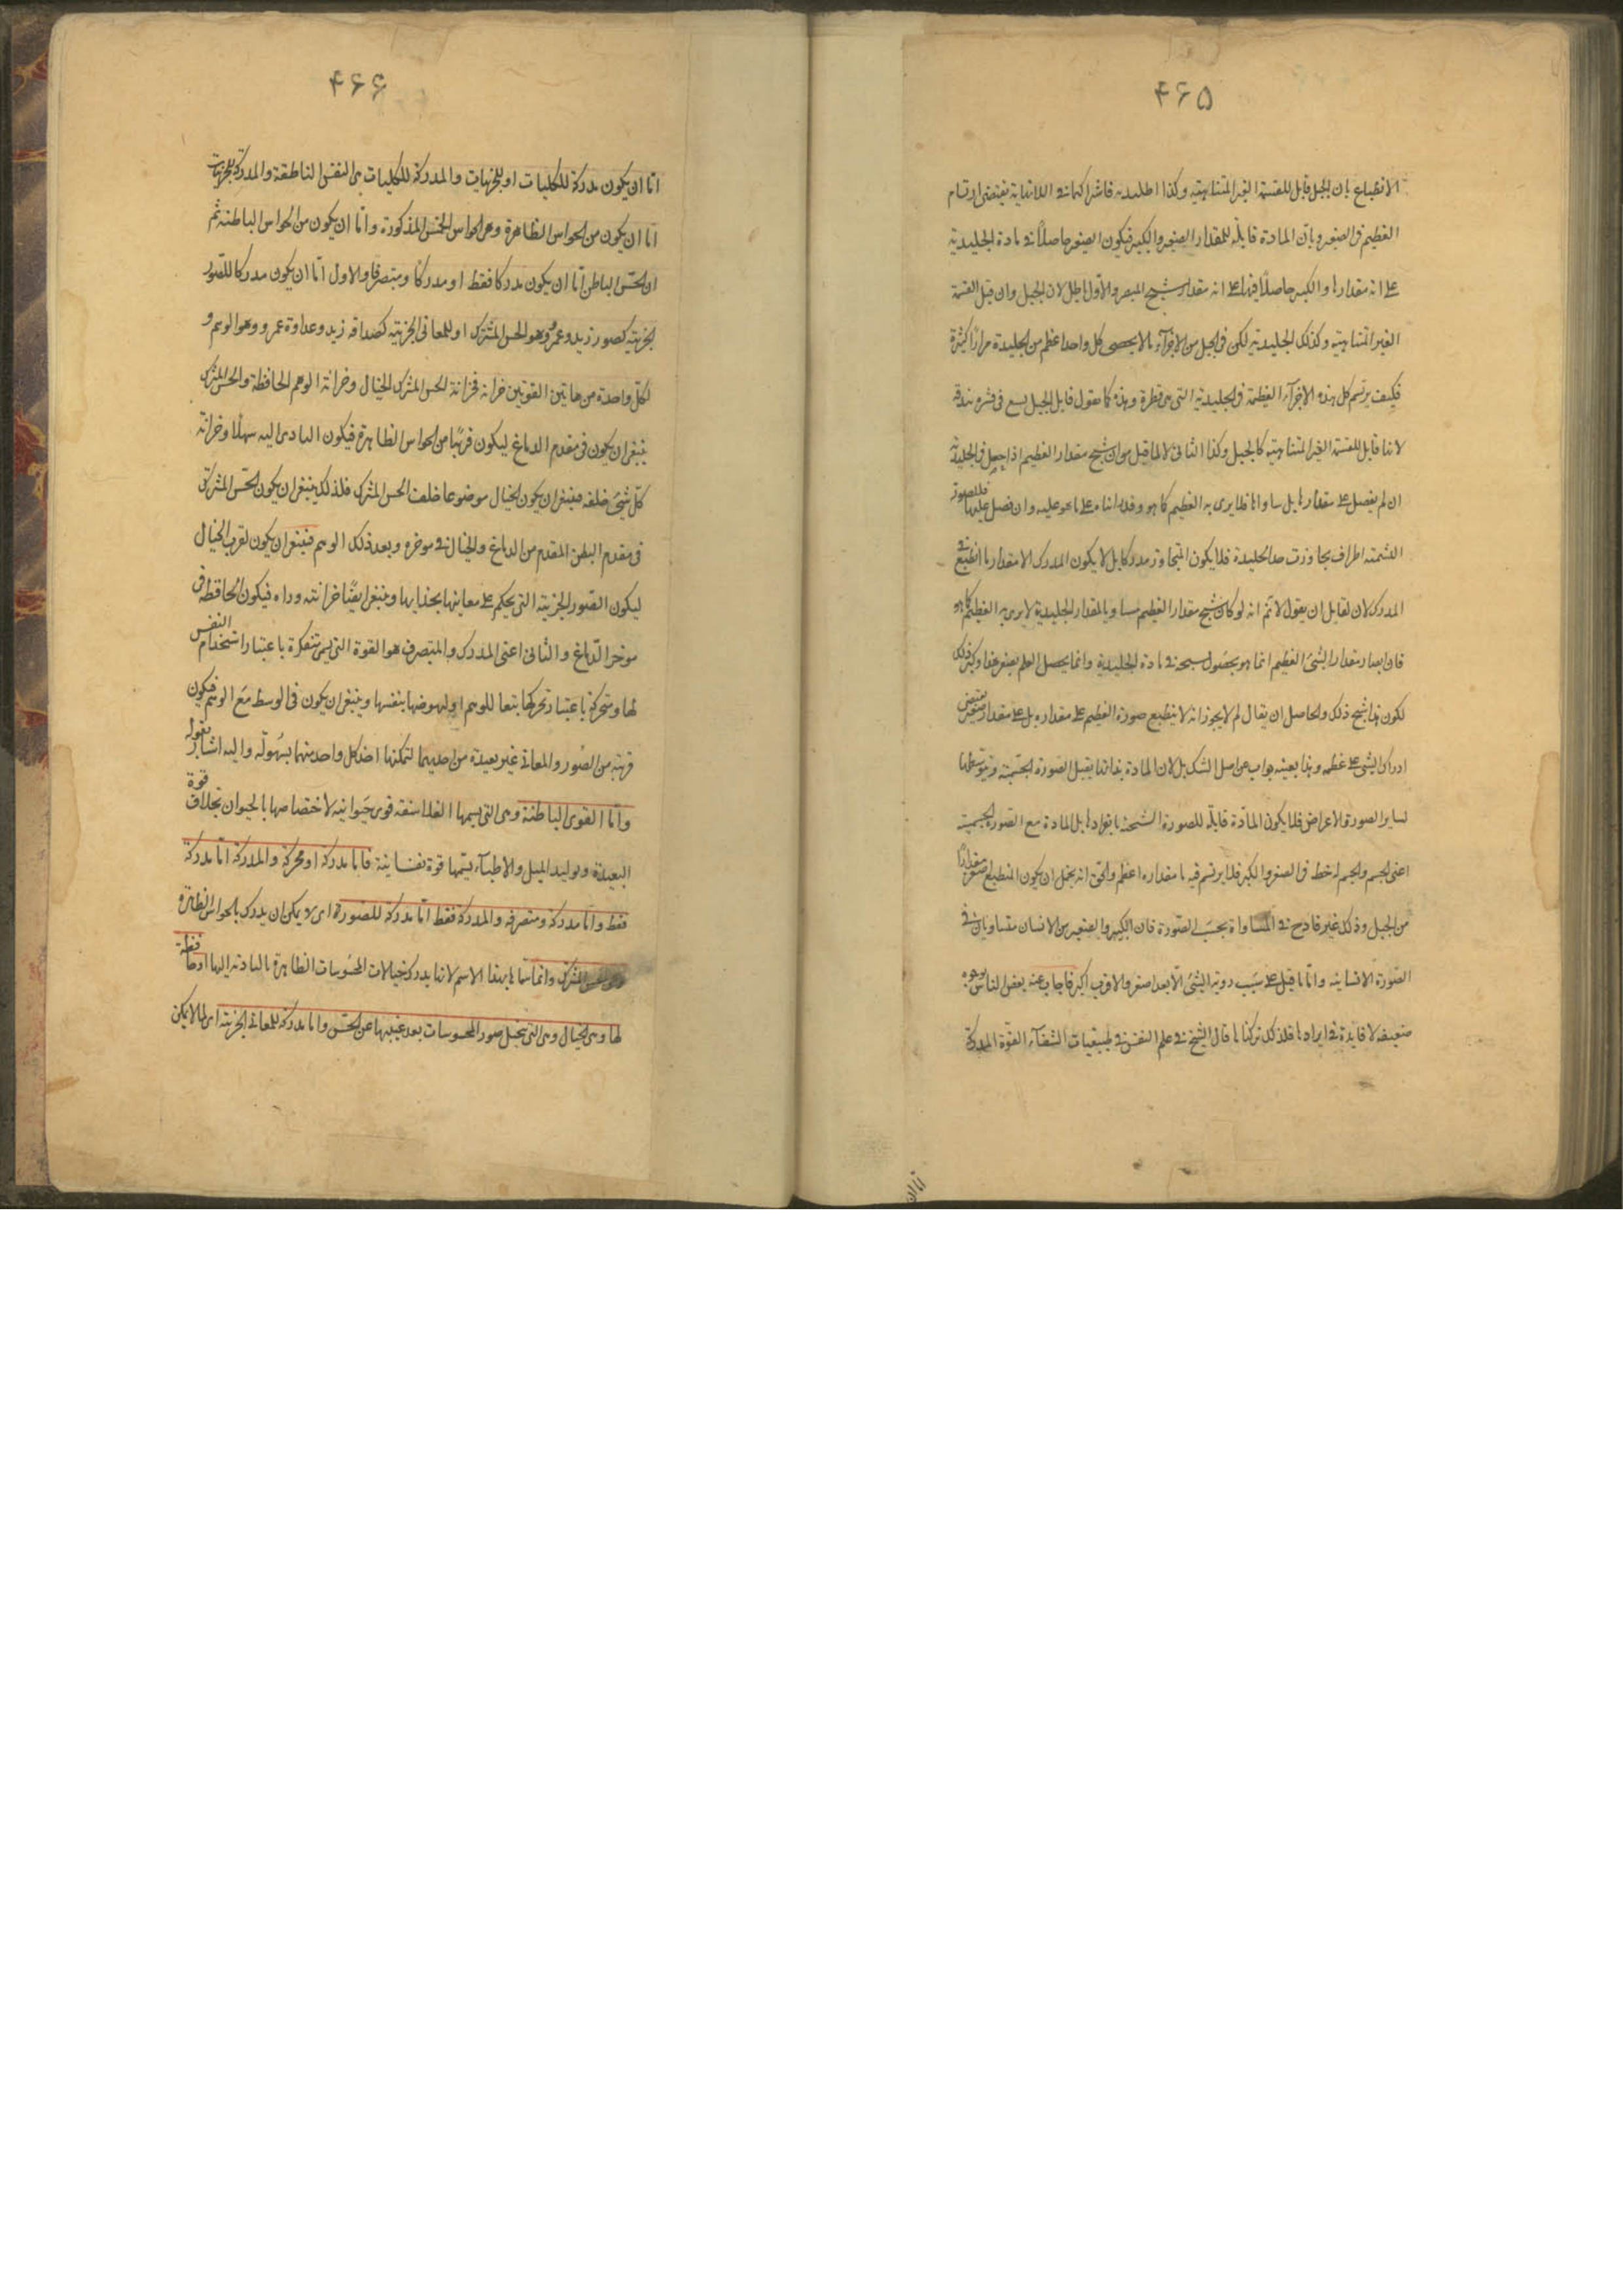 ۴۶۵
الانطباع بان الجبل قابل للقسمة الغير المتناهية وكذا الجليدية فاشتراكهما فى اللانهاية يقتضى ارتسام
العظيم فى الصغير وبان المادة قابلة للمقدار الصغير والكبير فيكون الصغير حاصلًا فى مادة الجليدية
على انه مقدارها والكبير حاصلًا فيها على انه مقدار شبح المبصر والاول باطل لان الجبل وان قبل القسمة
الغير المتناهية وكذلك الجليدية لكن فى الجبل من الاجزاء ما لا يحصى كل واحد اعظم من الجليدية مرارًا كثيرة
فكيف يرتسم كل هذه الاجزاء العظيمة فى الجليدية التى هى قطرة وهذه كما يقول قايل الجبل يسع فى قشره بندقة
لانها قابل للقسمة الغير المتناهية كالجبل وكذا الثانى لا لما قيل من ان شبح مقدار العظيم اذا حصل فى الجليدية
ان لم يفضل على مقدارها بل ساواها فلا يرى به العظيم كما هو وقد ابناه على ما هو عليه وان فضل عليها فلصورة
الشمته اطراف تجاوزت حد الجليدة فلا يكون المتجاوز مدركا بل لا يكون المدرك الا مقدار ما انطبع فى
المدرك لان لقايل ان يقول لا نم انه لو كان شبح مقدار العظيم مساويا لمقدار الجليدية لا يرى به العظيم كما هو
فان ابصار مقدار الشئ العظيم انما هو بحصول شبحه فى مادة الجليدية وانما يحصل العلم بعظمه وكذلك
لكون هذا شبح ذلك والحاصل ان يقال لم لا يجوز انه لا ينطبع صورة العظيم على مقداره بل على مقدار صغير يقتضى
ادراك الشئ على عظمه وهذا بعينه جواب عن اصل الشك بل لان المادة بذاتها يقبل الصورة الجسمية وبتوسطها
لساير الصور والاعراض فلا يكون المادة قابلة للصورة الشبحية بانفرادها بل المادة مع الصورة الجسمية
اعنى الجسم والجسم له خط فى الصغر والكبر فلا يرتسم فيه ما مقداره اعظم والحق انه يحتمل ان يكون المنطبع اصغر مقدارًا
من الجبل وذلك غير قادح فى المساواة بحسب الصورة فان الكبير والصغير من الانسان متساويان فى
الصورة الانسانية واما ما قيل على سبب روية الشئ الابعد اصغر والاقرب اكبر فاجاب عنه بعض الناس بوجوه
ضعيفه لا فايدة فى ايرادها فلذلك تركناها قال الشيخ فى علم النفس فى طبيعيات الشفاء القوة المدركة
اما ان
۴۶۶
اما ان يكون مدركة للكليات او للجزئيات والمدركة للكليات هى النفس الناطقة والمدركة للجزئيات
اما ان يكون من الحواس الظاهرة وهى الحواس الخمس المذكورة واما ان يكون من الحواس الباطنة ثم
ان الحس الباطن اما ان يكون مدركا فقط او مدركا ومتصرفا والاول اما ان يكون مدركا للصور
الجزئية كصور زيد وعمرو وهو الحس المشترك او للمعانى الجزئية كصداقة زيد وعداوة عمرو وهو الوهم و
لكل واحدة من هاتين القوتين خزانة فخزانة الحس المشترك الخيال وخزانة الوهم الحافظة والحس المشترك
ينبغى ان يكون فى مقدم الدماغ ليكون قريبًا من الحواس الظاهرة فيكون التادى اليه سهلًا وخزانة
كل شئ خلفه فينبغى ان يكون الخيال موضوعا خلف الحس المشترك فلذلك ينبغى ان يكون الحس المشترك
فى مقدم البطن المقدم من الدماغ والخيال فى موخره وبعد ذلك الوهم فينبغى ان يكون لقرب الخيال
ليكون الصور الجزئية التى يحكم على معانيها بحذايها وينبغى ايضًا خزانته وراه فيكون الحافظة فى
موخر الدماغ والثانى اعنى المدرك والمتصرف هو القوة التى يسمى متفكرة باعتبار استخدام النفس
لها ومتحركة باعتبار تحركها تبعا للوهم او لنهوضها بنفسها وينبغى ان يكون فى الوسط مع الوهم فيكون
قريبة من الصور والمعانى غير بعيدة من احديهما لتمكنها اخذ كل واحد منهما بسهولة واليه اشار بقوله
واما القوى الباطنة وهى التى يسميها الفلاسفه قوى حيوانيه لاختصاصها بالحيوان بخلاف قوة
البعيدة وتوليد الميل والاطباء يسميها قوة نفسانية فاما مدركة او محركة والمدركة اما مدركة
فقط واما مدركة ومتصرفه والمدركة فقط اما مدركة للصورة اى لا يمكن ان يدرك بالحواس الظاهرة
وهى الحس المشترك وانما سماها بهذا الاسم لانها يدرك خيالات المحسوسات الظاهرة بالتادية اليها او حافظة
لها وهى الخيال وهى التى يتخيل صور المحسوسات بعد غيبتها عن الحس واما مدركة للمعانى الجزئية اى لما لا يمكن